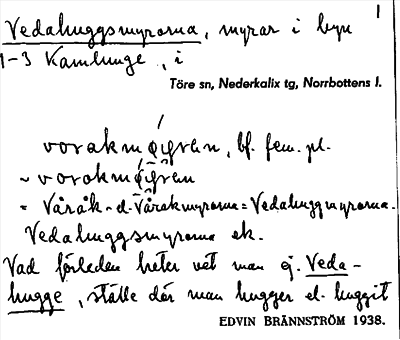 1
Vedahuggsmyrorna, myrar i byn
1-3 Kamlunge, i
Töre sn, Nederkalix tg, Norrbottens l.
bf. fem. pl.
~
= Våråk- d. Våråkmyrorna = Vedahuggmyrorna.
Vedahuggsmyrorna ek.
Vad förleden heter vet man ej. Veda-
hugge, ställe där man hugger el. huggit
EDVIN BRÄNNSTRÖM 1938.